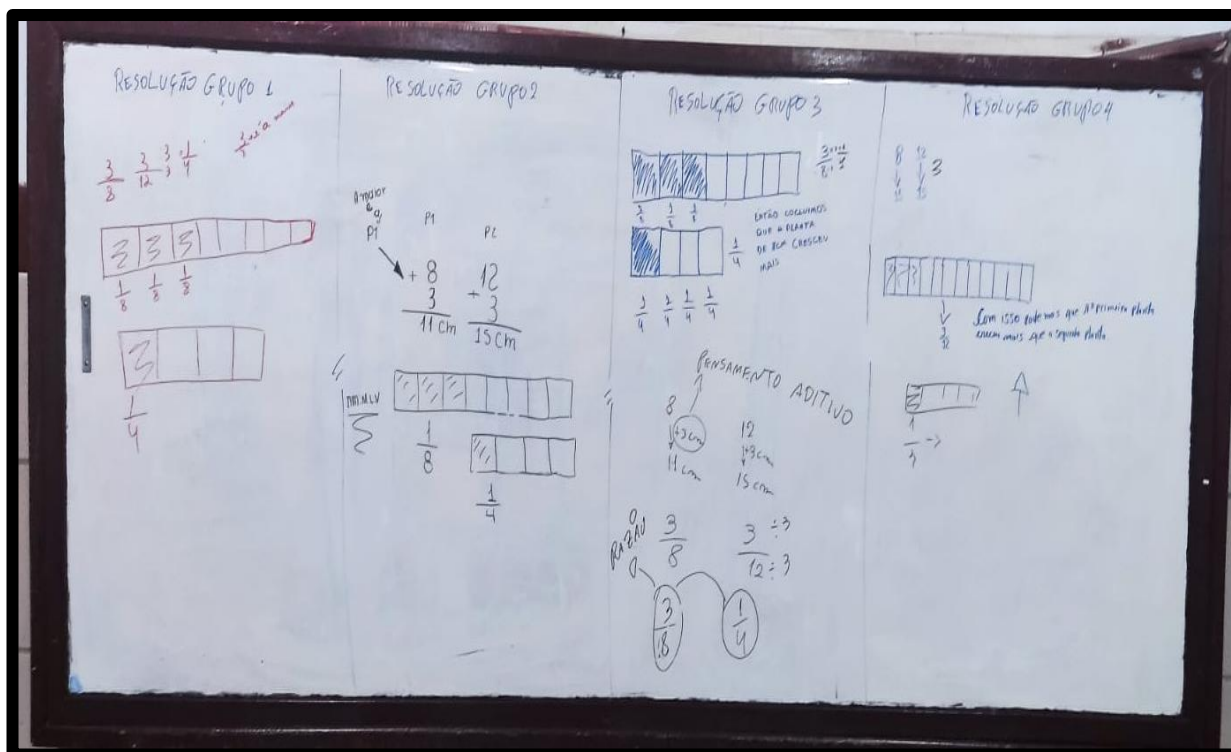 RESOLUÇÃO GRUPO 1
3/8 3/12 :3/:3 = 1/4
3/8
1/8 1/8 1/8
1/4
RESOLUÇÃO GRUPO 2
A maior
é a
P1
P1
P2
+ 8
3
11 cm
12
+ 3
15 cm
1/8
1/4
RESOLUÇÃO GRUPO 3
3/8
1/8 1/8 1/8
ENTÃO CONCLUIMOS
QUE A PLANTA
DE
CRESCEU
MAIS
1/4
1/4 1/4 1/4 1/4
PENSAMENTO ADITIVO
8
+3cm
11cm
12
+3cm
15cm
RAZÃO
3/8
3 ÷3
12 ÷3
3/8
1/4
RESOLUÇÃO GRUPO 4
8 12
3
11 15
3/12
Com isso podemos que a primeira planta
cresceu mais que a segunda planta